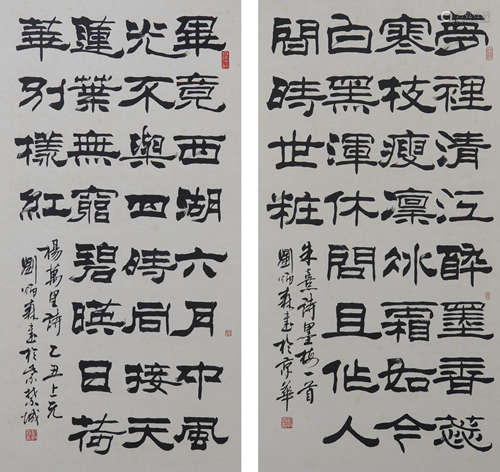 夢裡清江醉墨香蕊
寒枝瘦凛冰霜如今
白黑渾休問且作人
間時世粧
朱熹詩墨梅一首
劉炳森書於京華
畢竟西湖六月中風
光不與四時同接天
蓮葉無窮碧暎日荷
華別樣紅
楊萬里詩 乙丑上元
劉炳森書於紫禁城